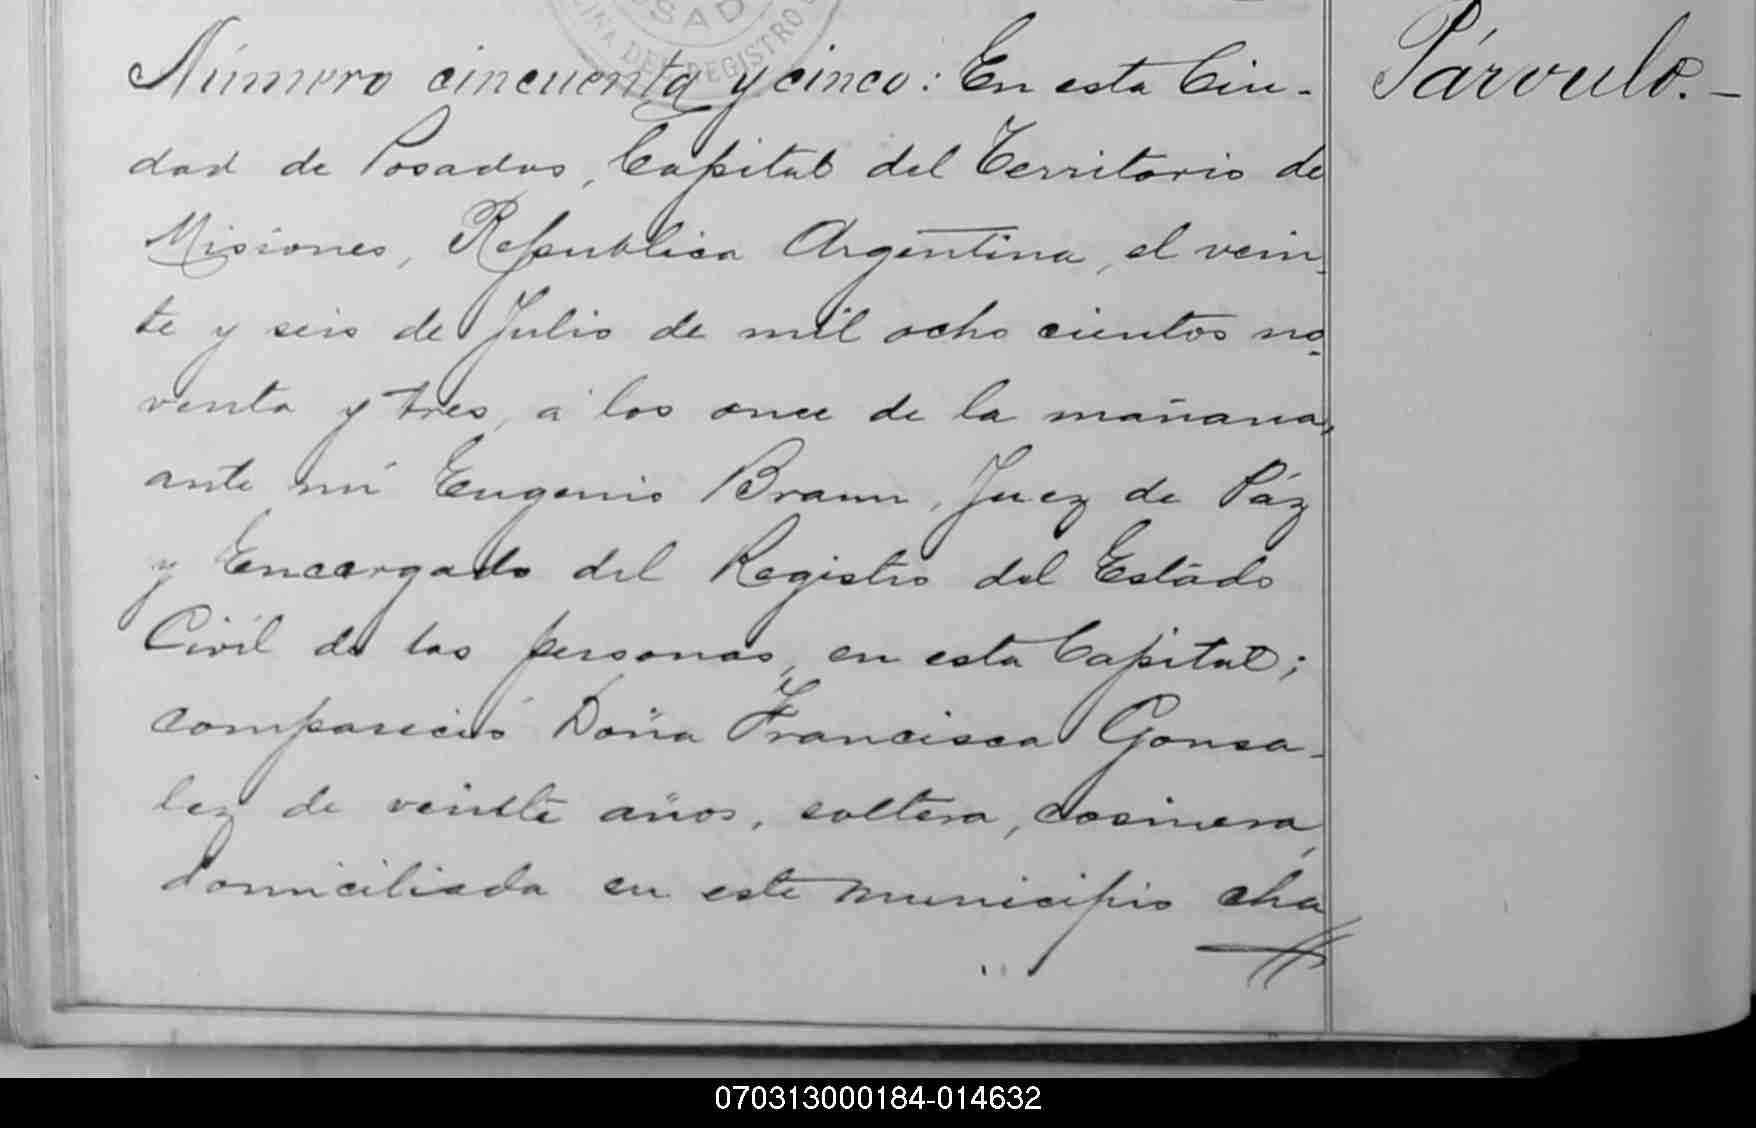 SAD
INA DEL REGISTRO
Número cincuenta y cinco: En esta Ciu-
dad de Posadas, Capital del Territorio de
Misiones, Republica Argentina, el vein-
te y seis de Julio de mil ocho cientos no-
venta y tres, á las once de la mañana,
ante mí Eugenio Braun, Juez de Páz
y Encargado del Registro del Estádo
Civíl de las personas, en esta Capital;
compareció Doña Francisca Gonsa-
lez de veinte años, soltera, cosinera,
domiciliada en este municipio cha
Párvulo.-
070313000184-014632